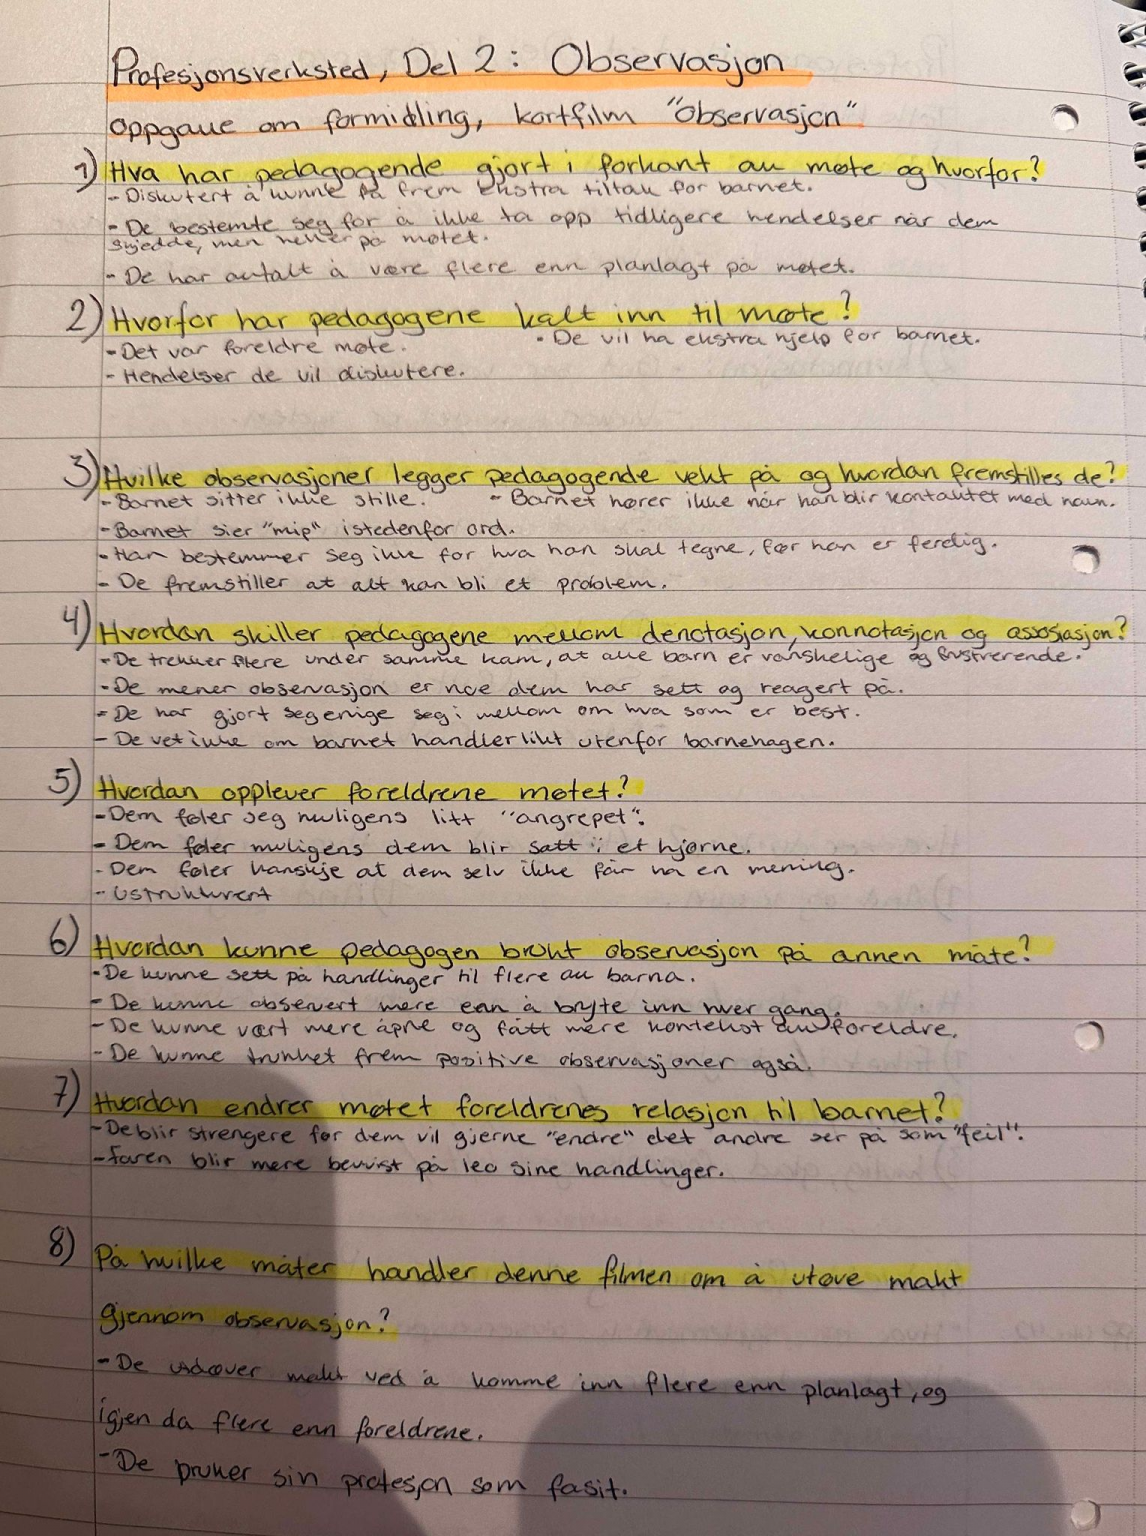 Profesjonsverksted, Del 2: Observasjon
Oppgave om formidling, kortfilm "Observasjon"
1) Hva har pedagogende gjort i forkant av møte og hvorfor?
- Diskutert å kunne få frem ekstra tiltak for barnet.
- De bestemte seg for å ikke ta opp tidligere hendelser når dem
skjedde, men heller på møtet.
- De har avtalt å være flere enn planlagt på møtet.
2) Hvorfor har pedagogene kalt inn til møte?
- Det var foreldre møte. - De vil ha ekstra hjelp for barnet.
- Hendelser de vil diskutere.
3) Hvilke observasjoner legger pedagogende vekt på og hvordan fremstilles de?
- Barnet sitter ikke stille. - Barnet hører ikke når han blir kontaktet med navn.
- Barnet sier "mip" istedenfor ord.
- Han bestemmer seg ikke for hva han skal tegne, før han er ferdig.
- De fremstiller at alt kan bli et problem.
4) Hvordan skiller pedagogene mellom denotasjon, konnotasjon og assosiasjon?
- De trekker flere under samme kam, at alle barn er vanskelige og frustrerende.
- De mener observasjon er noe dem har sett og reagert på.
- De har gjort seg enige seg i mellom om hva som er best.
- De vet ikke om barnet handler likt utenfor barnehagen.
5) Hvordan opplever foreldrene møtet?
- Dem føler seg muligens litt "angrepet".
- Dem føler muligens dem blir satt i et hjørne.
- Dem føler kanskje at dem selv ikke får ha en mening.
- Ustrukturert
6) Hvordan kunne pedagogen brukt observasjon på annen måte?
- De kunne sett på handlinger til flere av barna.
- De kunne observert mere enn å bryte inn hver gang.
- De kunne vært mere åpne og fått mere kontekst av foreldre.
- De kunne trukket frem positive observasjoner også.
7) Hvordan endrer møtet foreldrenes relasjon til barnet?
- De blir strengere for dem vil gjerne "endre" det andre ser på som "feil".
- Faren blir mere bevvist på leo sine handlinger.
8) På hvilke måter handler denne filmen om å utøve makt
gjennom observasjon?
- De makt ved å komme inn flere enn planlagt, og
igjen da flere enn foreldrene.
- De bruker sin profesjon som fasit.